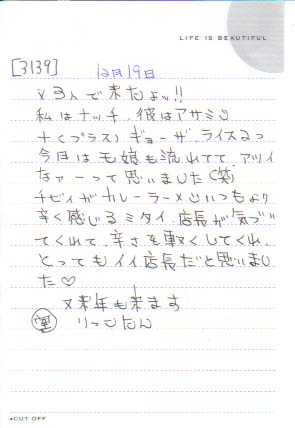 LIFE IS BEAUTIFUL
[3139] 12月19日
又3人で来たよッ!!
私はナッチ、彼はアサミ
+(プラス) ギョーザ、ライス2つ
今日はモ娘も流れてて、アツイ
なァーって思いました(笑)
チビィがカレーラーメンいつもより
辛く感じるミタイ。店長が気づい
てくれて、辛さを軽くしてくれ、
とってもイイ店長だと思いまし
た♡
又来年も来ます
りっこたん
CUT OFF